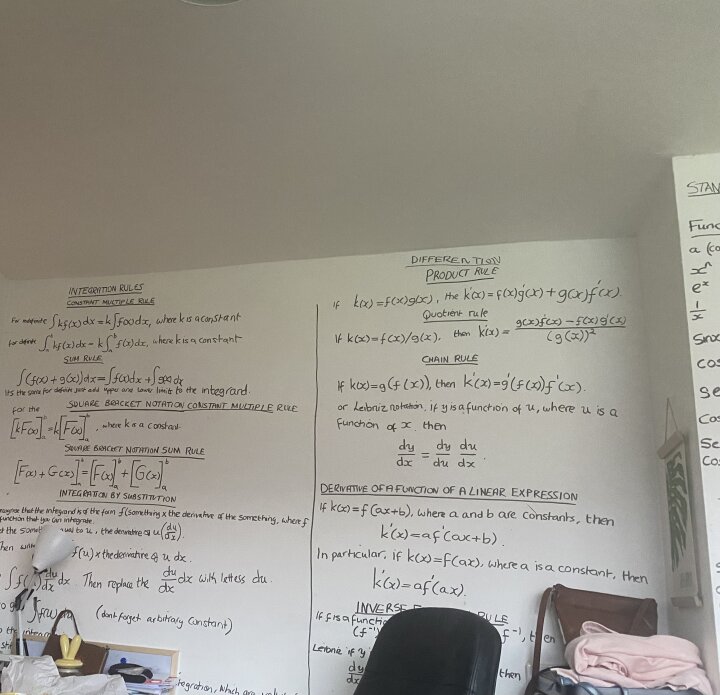 INTEGRATION RULES
CONSTANT MULTIPLE RULE
For indefinite ∫kf(x)dx = k∫f(x)dx, where k is a constant
For definite ∫ₐᵇ kf(x)dx = k∫ₐᵇ f(x)dx, where k is a constant
SUM RULE
∫(f(x) + g(x))dx = ∫f(x)dx + ∫g(x)dx
It's the same for definite just add upper and lower limits to the integrand.
for the SQUARE BRACKET NOTATION CONSTANT MULTIPLE RULE
[kF(x)]ₐᵇ = k[F(x)]ₐᵇ, where k is a constant
SQUARE BRACKET NOTATION SUM RULE
[F(x) + G(x)]ₐᵇ = [F(x)]ₐᵇ + [G(x)]ₐᵇ
INTEGRATION BY SUBSTITUTION
that the integrand is of the form f(something) x the derivative of the something, where f
function that you can integrate.
the equal to u, the derivative of u (du/dx).
Then f(u) x the derivative of u dx.
∫f( ) du/dx dx. Then replace the du/dx dx with letters du.
∫f(u) (don't forget arbitrary constant)
the
tegration, which are
DIFFERENTION
PRODUCT RULE
If k(x) = f(x)g(x), the k'(x) = f(x)g'(x) + g(x)f'(x).
Quotient rule
If k(x) = f(x)/g(x), then k'(x) = g(x)f'(x) – f(x)g'(x) / (g(x))²
CHAIN RULE
If k(x) = g(f(x)), then k'(x) = g'(f(x))f'(x).
or Leibniz notation, if y is a function of u, where u is a
function of x then
dy/dx = dy/du du/dx.
DERIVATIVE OF A FUNCTION OF A LINEAR EXPRESSION
If k(x) = f(ax+b), where a and b are constants, then
k'(x) = af'(ax+b).
In particular, if k(x) = f(ax), where a is a constant, then
k'(x) = af'(ax).
INVERSE RULE
If f is a function f⁻¹, then
(f⁻¹)'
Leibniz if y then
dy/dx
STAN
Func
a (co
xⁿ
eˣ
1/x
Sinx
cos
Se
Cos
Se
Cos